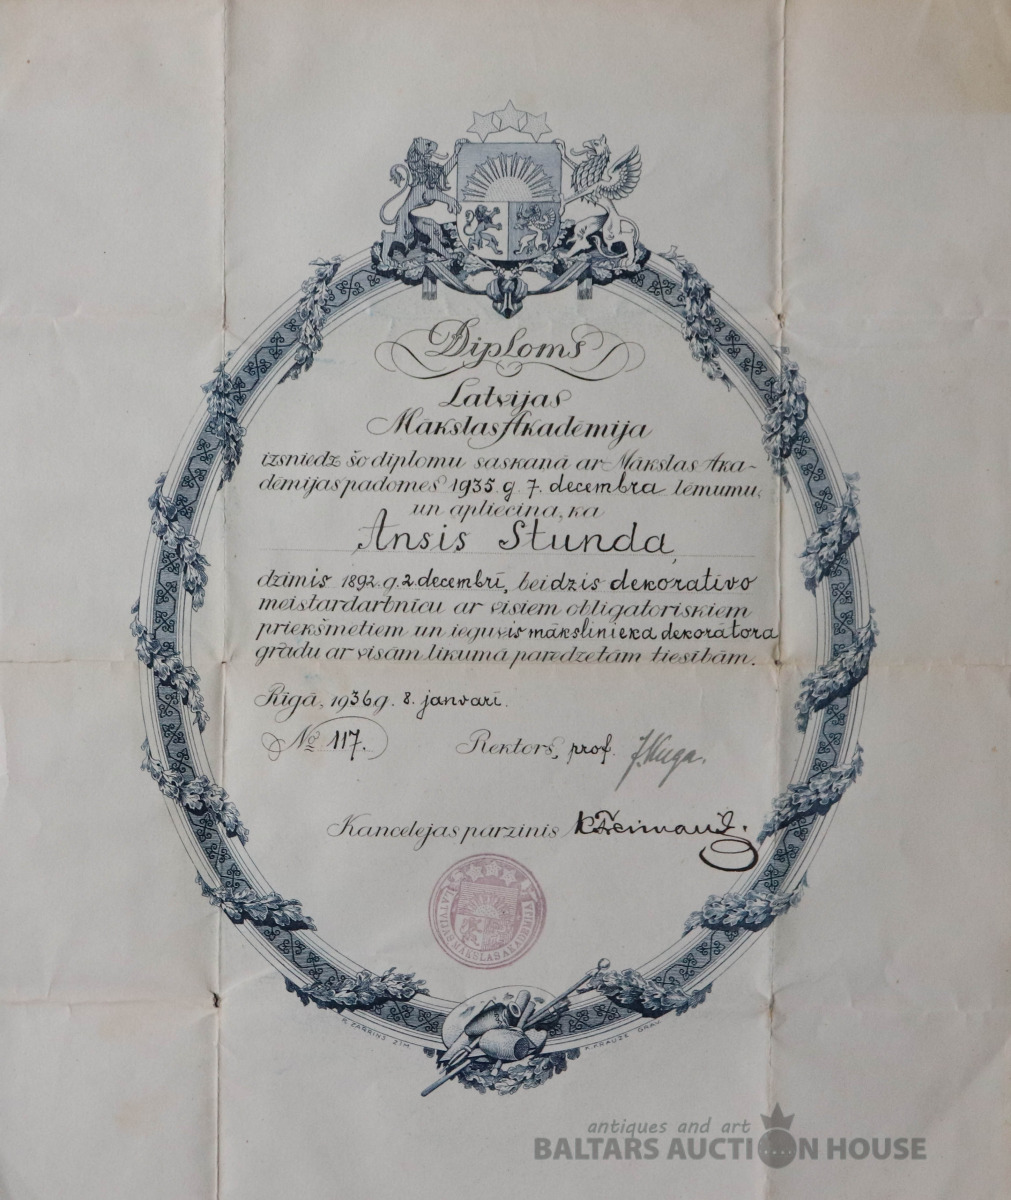 Diploms
Latvijas
Mākslas Akadēmija
izsniedz šo diplomu saskaņā ar Mākslas Aka-
dēmijas padomes 1935. g. 7. decembra lēmumu,
un apliecina, ka
Ansis Stunda,
dzimis 1892. g. 2. decembrī, beidzis dekoratīvo
meistardarbnīcu ar visiem obligatoriskiem
priekšmetiem un ieguvis mākslinieka dekorātora
grādu ar visām likumā paredzētām tiesībām.
Rīgā, 1936 g. 8. janvarī.
№ 117.
Rektors, prof. J. Kuga.
Kancelejas pārzinis
LATVIJAS MĀKSLAS AKADĒMIJA
R. ZARRIŅŠ ZIM.
K. KRAUZE GRAV.
antiques and art
BALTARS AUCTION HOUSE